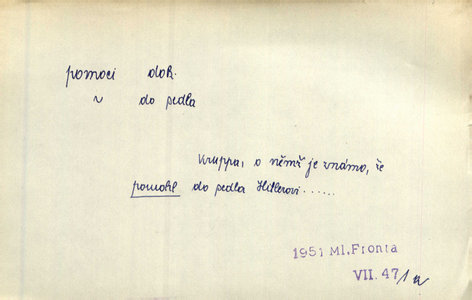 pomoci dok.
v do sedla
Kruppa, o němž je známo, že
pomohl do sedla Hitlerovi......
1951 Ml. Fronta
VII. 47/1a